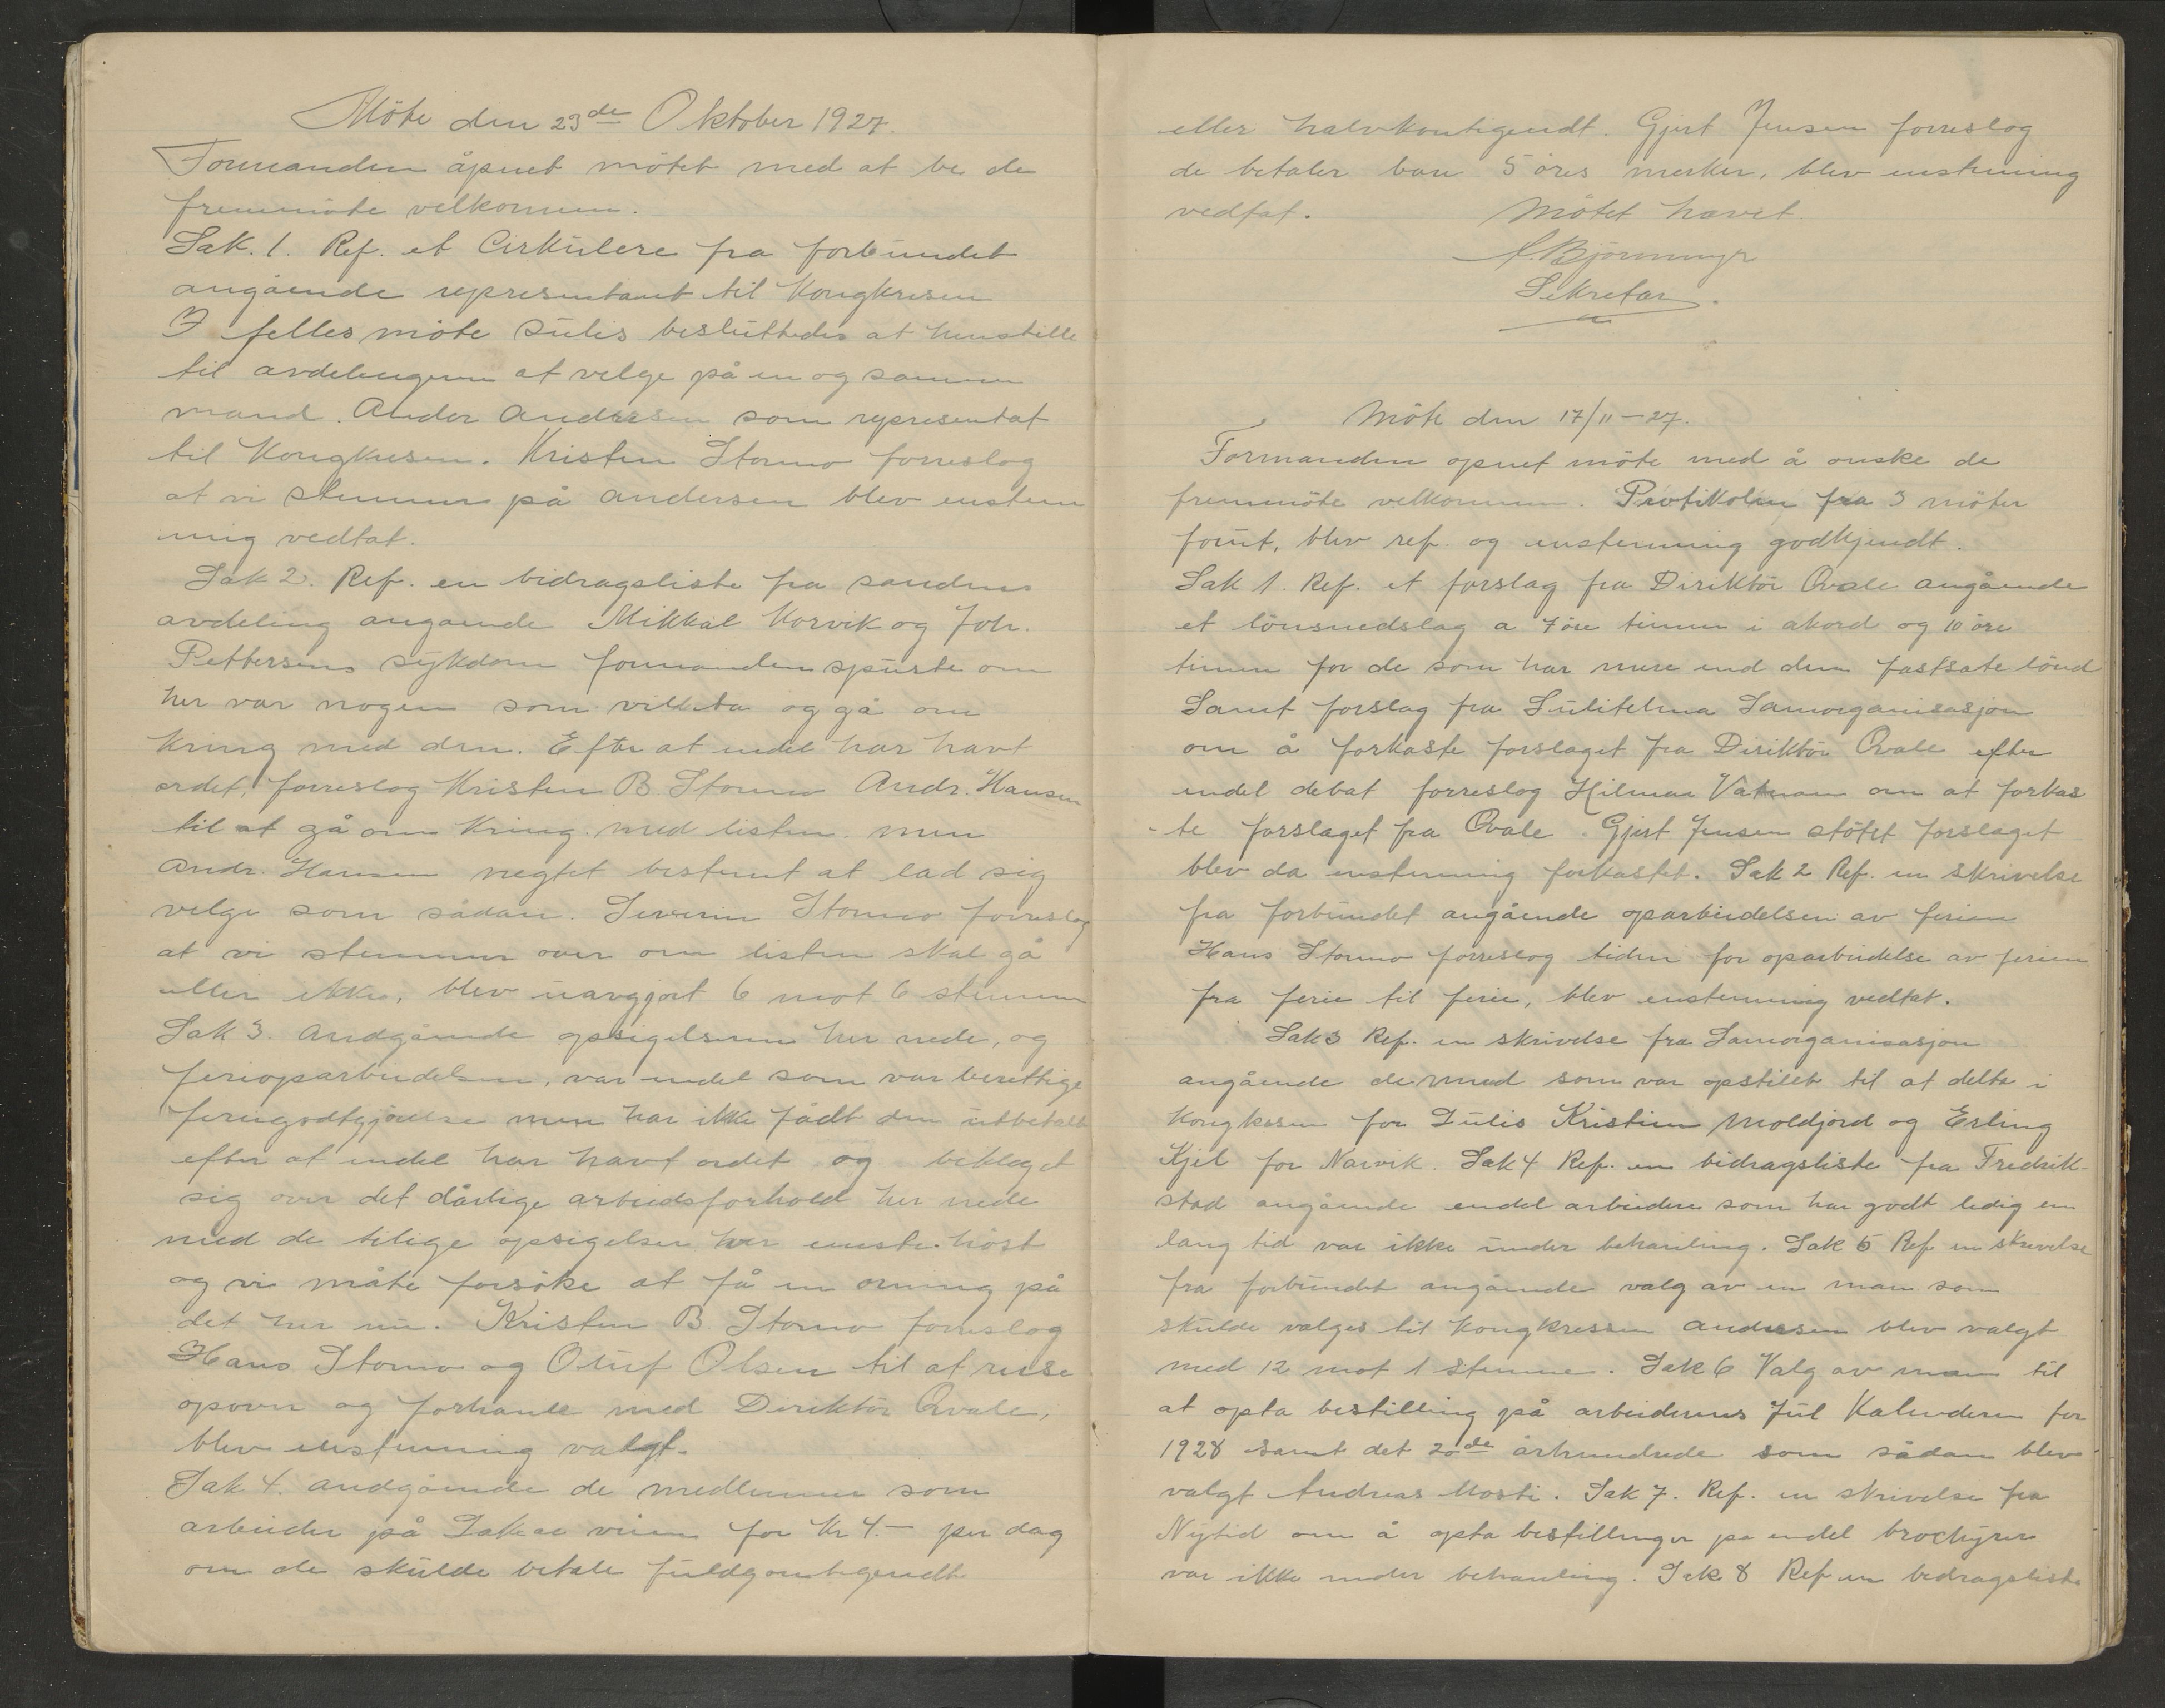 Möte den 23de Oktober 1927.
Formanden åpnet mötet med at be de
fremmöte velkommen.
Sak. 1. Ref. et Cirkulere fra forbundet
angående representant til Kongkresen
I felles möte Sulis besluttedes at henstille
til avdelingene at velge på en og samme
mand. Ander Andresen som representat
til Kongkresen. Kristen Stormo forreslog
at vi stemmer på Andersen blev enstem
mig vedtat.
Sak 2. Ref. en bidragsliste fra sandnes
avdeling angaende Mikkal Korvik og Joh.
Pettersens sykdom formanden spurte om
her var nogen som vilde ta og gå om
kring med den. Efter at endel har havt
ordet, forreslog Kristen B. Stormo Andr. Hansen
til at gå om kring med listen men
Andr. Hansen negtet bestemt at lad sig
velge som sådan. Severin Stormo forreslog
at vi stemmer over om listen skal gå
eller ikke, blev uavgjort 6 mot 6 stemmer
Sak 3. Andgående opsigelserne her nede, og
ferieoparbeidelsen, var endel som var berettige
feriegodtgjörelse men har ikke fådt den utbetalt
efter at endel har havt ordet og beklaget
sig over det dårlige arbeidsforhold her nede
med de tilige opsigelser hver eneste höst
og vi måte forsöke at få en orning på
det her nu. Kristen B. Stormo forreslog
Hans Stormo og Oluf Olsen til at reise
opover og forhanle med Direktör Qvale,
blev enstemmig valgt.
Sak 4. Andgående de medlemmer som
arbeider på for Kr 4.- per dag
om de skulde betale fuldgontigendt
eller halvkontigendt. Gjert Jensen forreslog
de betaler bare 5 öres merker, blev enstemmig
vedtat. Mötet hævet.
Bjørnmyr
Sekretær.
Möte den 17/11-27.
Formanden opnet möte med å onske de
fremmöte velkommen. Protikolen fra 3 möter
forut, blev ref. og enstemmig godkjendt.
Sak 1. Ref. et forslag fra Diriktör Qvale angående
et lönsnedslag a 7 öre timen i akord og 10 öre
timen for de som har mere end den fastsate lönd
Samt forslag fra Sulitelma Samorganisasjon
om å forkaste forslaget fra Diriktör Qvale efter
endel debat forreslog Hilmar Vatnan om at forkas
-te forslaget fra Qvale. Gjert Jensen stötet forslaget
blev da enstemmig forkastet. Sak 2 Ref. en skrivelse
fra forbundet angående oparbeidelsen av ferien
Hans Stormo forreslog tiden for oparbeidelse av ferien
fra ferie til ferie, blev enstemmig vedtat.
Sak 3 Ref. en skrivelse fra Samorganisasjon
angående de mend som var opstilet til at delta i
Kongkesen for Sulis Kristian Moldjord og Erling
Kjel for Narvik. Sak 4 Ref. en bidragsliste fra Fredrik-
stad angående endel arbeidere som har godt ledig en
lang tid var ikke under behanling. Sak 5 Ref en skrivelse
fra forbundet angående valg av en man som
skulde valges til kongkressen Andersen blev valgt
med 12 mot 1 stemme. Sak 6 Valg av man til
at opta bestilling på arbeidernes Jul Kalenderen for
1928 samt det 20de århundrede som sådan blev
valgt Andreas Mosti. Sak 7. Ref. en skrivelse fra
Nytid om å opta bestillinger pa endel brochyrer
var ikke under behanling. Sak 8 Ref en bedragsliste